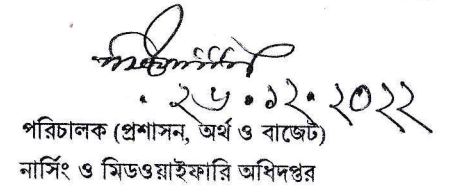 ২৬.১২.২০২২
পরিচালক (প্রশাসন, অর্থ ও বাজেট)
নার্সিং ও মিডওয়াইফারি অধিদপ্তর